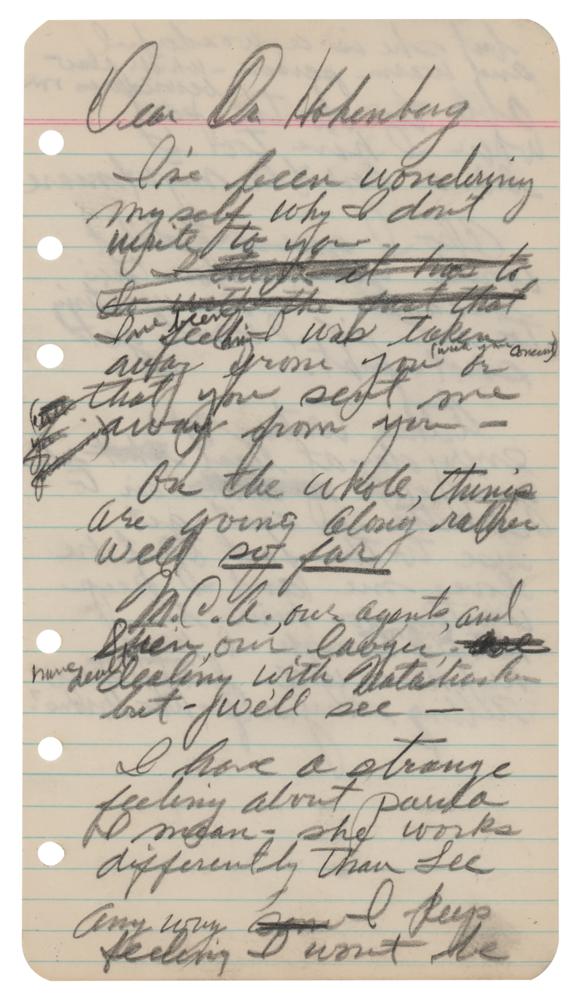 Dear Dr Hohenberg
I've been wondering
myself why I don't
write to you
think it has to
do with the fact that
I've been feeling I was taken
away from you (with your consent) or
that you sent me
away from you —
On the whole, things
are going along rather
well so far
M.C.A., our agents, and
Stein, our lawyer, are
dealing with Natasha
but - we'll see —
I have a strange
feeling about paula
I mean - she works
differently than Lee
any way I keep
feeling I won't be